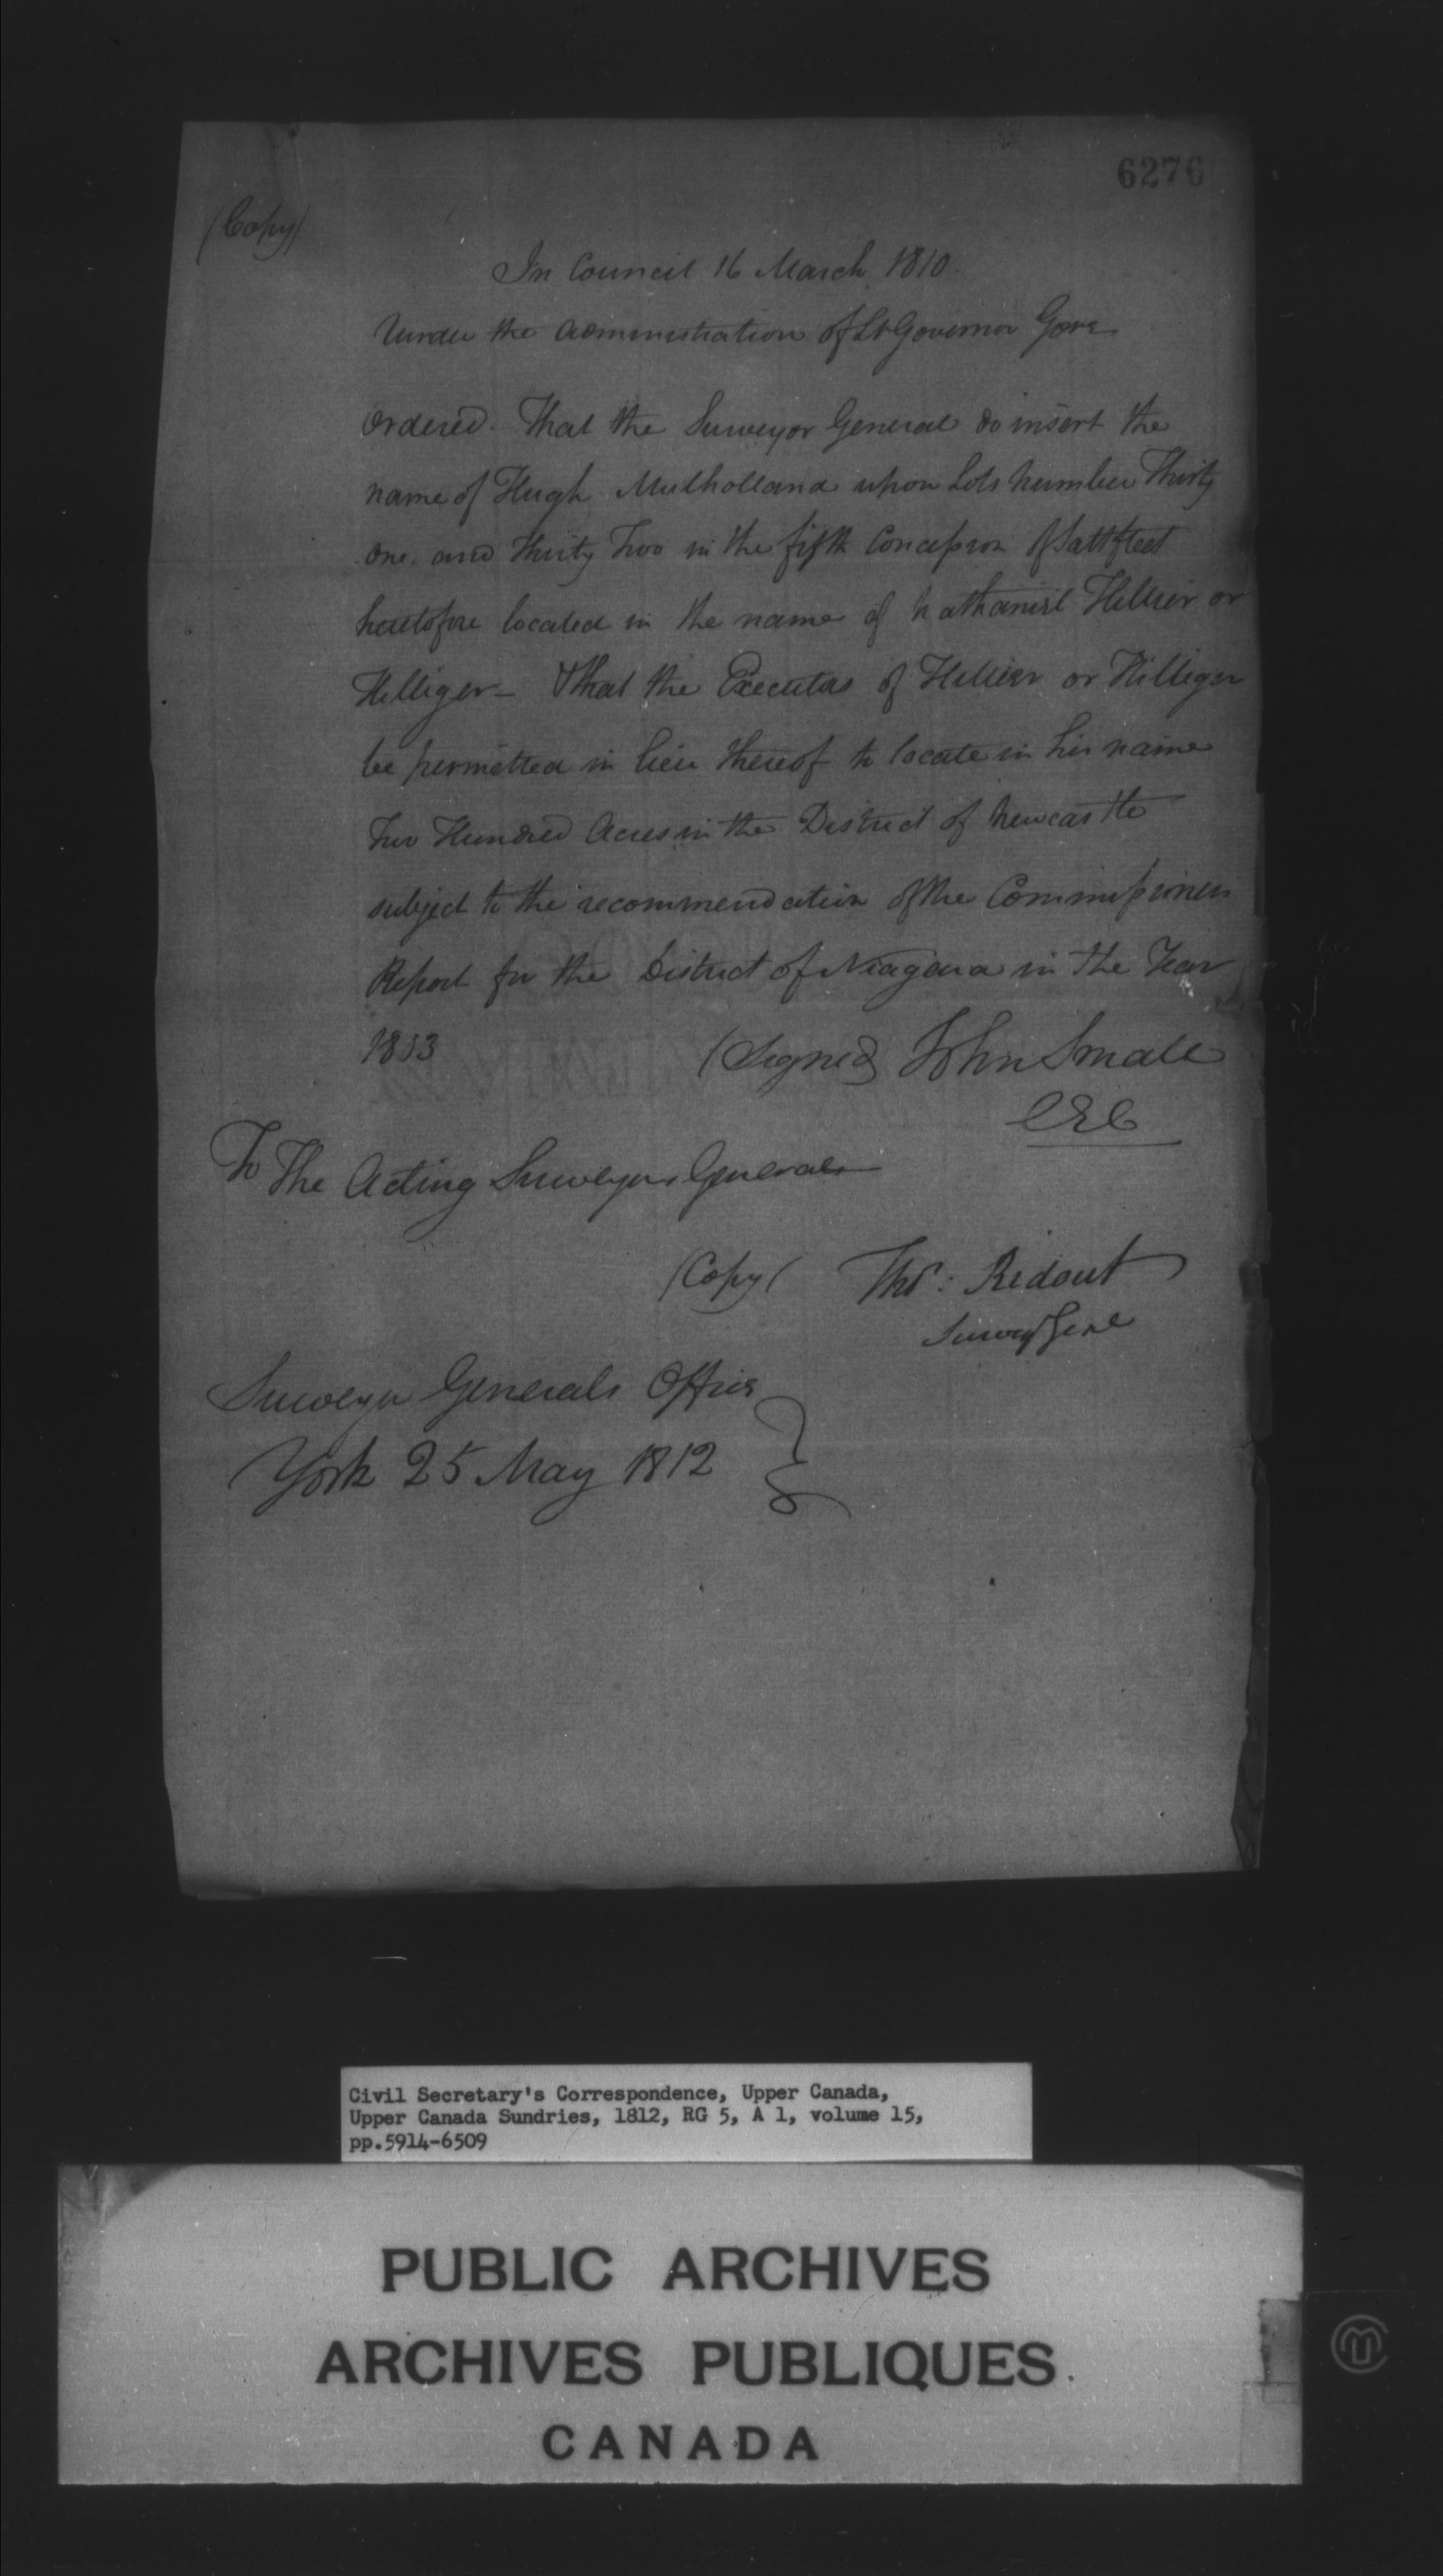 6276
(Copy)
In Council 16 March 1810.
Under the administration of Lt Governor Gore
Ordered. That the Surveyor General do insert the
name of Hugh Mulholland upon Lots number Thirty
one and Thirty Two in the fifth Concession of Saltfleet
heretofore located in the name of Nathaniel Hellier or
Helliger - & that the Executors of Hellier or Hilliger
be permitted in lieu thereof to locate in his name
Two Hundred Acres in the District of Newcastle
subject to the recommendation of the Commissioners
Report for the District of Niagara in the Year
(Signed) John Small
CEC
To The Acting Surveyor General
(Copy( Thos: Ridout
Survey Genl
Surveyor Generals Office
York 25 May 1812
Civil Secretary's Correspondence, Upper Canada,
Upper Canada Sundries, 1812, RG 5, A 1, volume 15,
pp.5914-6509
PUBLIC ARCHIVES
ARCHIVES PUBLIQUES
CANADA